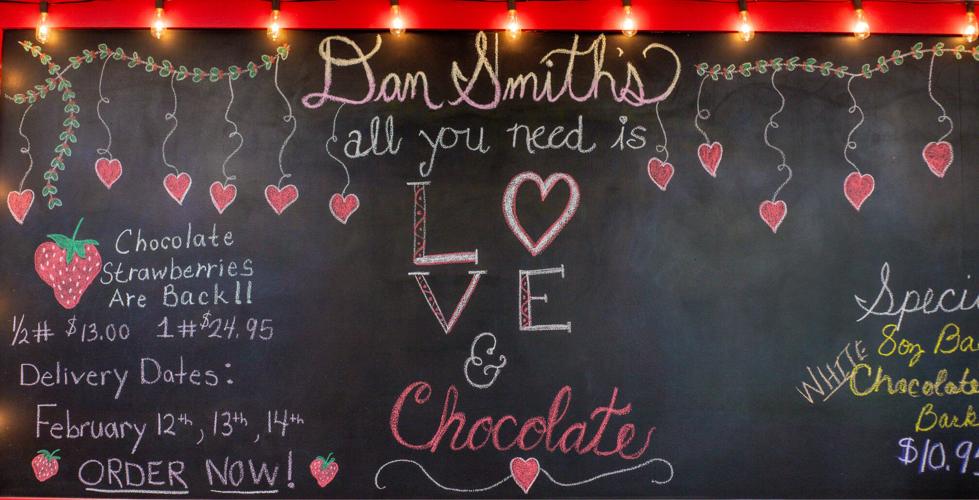 Dan Smith's
all you need is
LO
VE
&
Chocolate
Chocolate
Strawberries
Are Back!!
1/2# $13.00 1# $24.95
Delivery Dates:
February 12th, 13th, 14th
ORDER NOW!
Speci
8oz Ba
WHITE Chocolate
Bark
$10.9